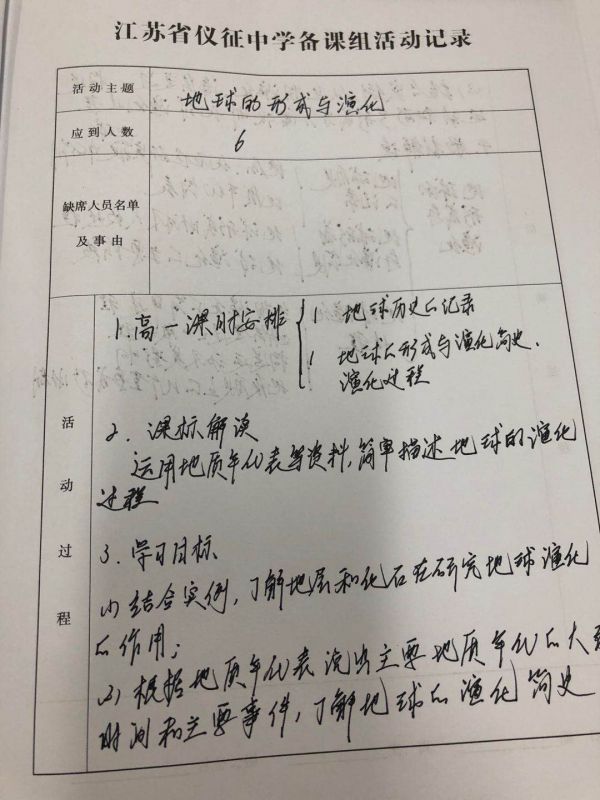 江苏省仪征中学备课组活动记录
活动主题 地球的形成与演化
应到人数 6
缺席人员名单
及事由
活动过程
1.高一课时安排 { 1 地球历史的记录
1 地球的形成与演化简史、
演化过程
2. 课标解读
运用地质年代表等资料,简单描述地球的演化
过程
3. 学习目标
(1) 结合实例,了解地层和化石在研究地球演化
的作用;
(2) 根据地质年代表说出主要地质年代的大致
时间和主要事件,了解地球的演化简史